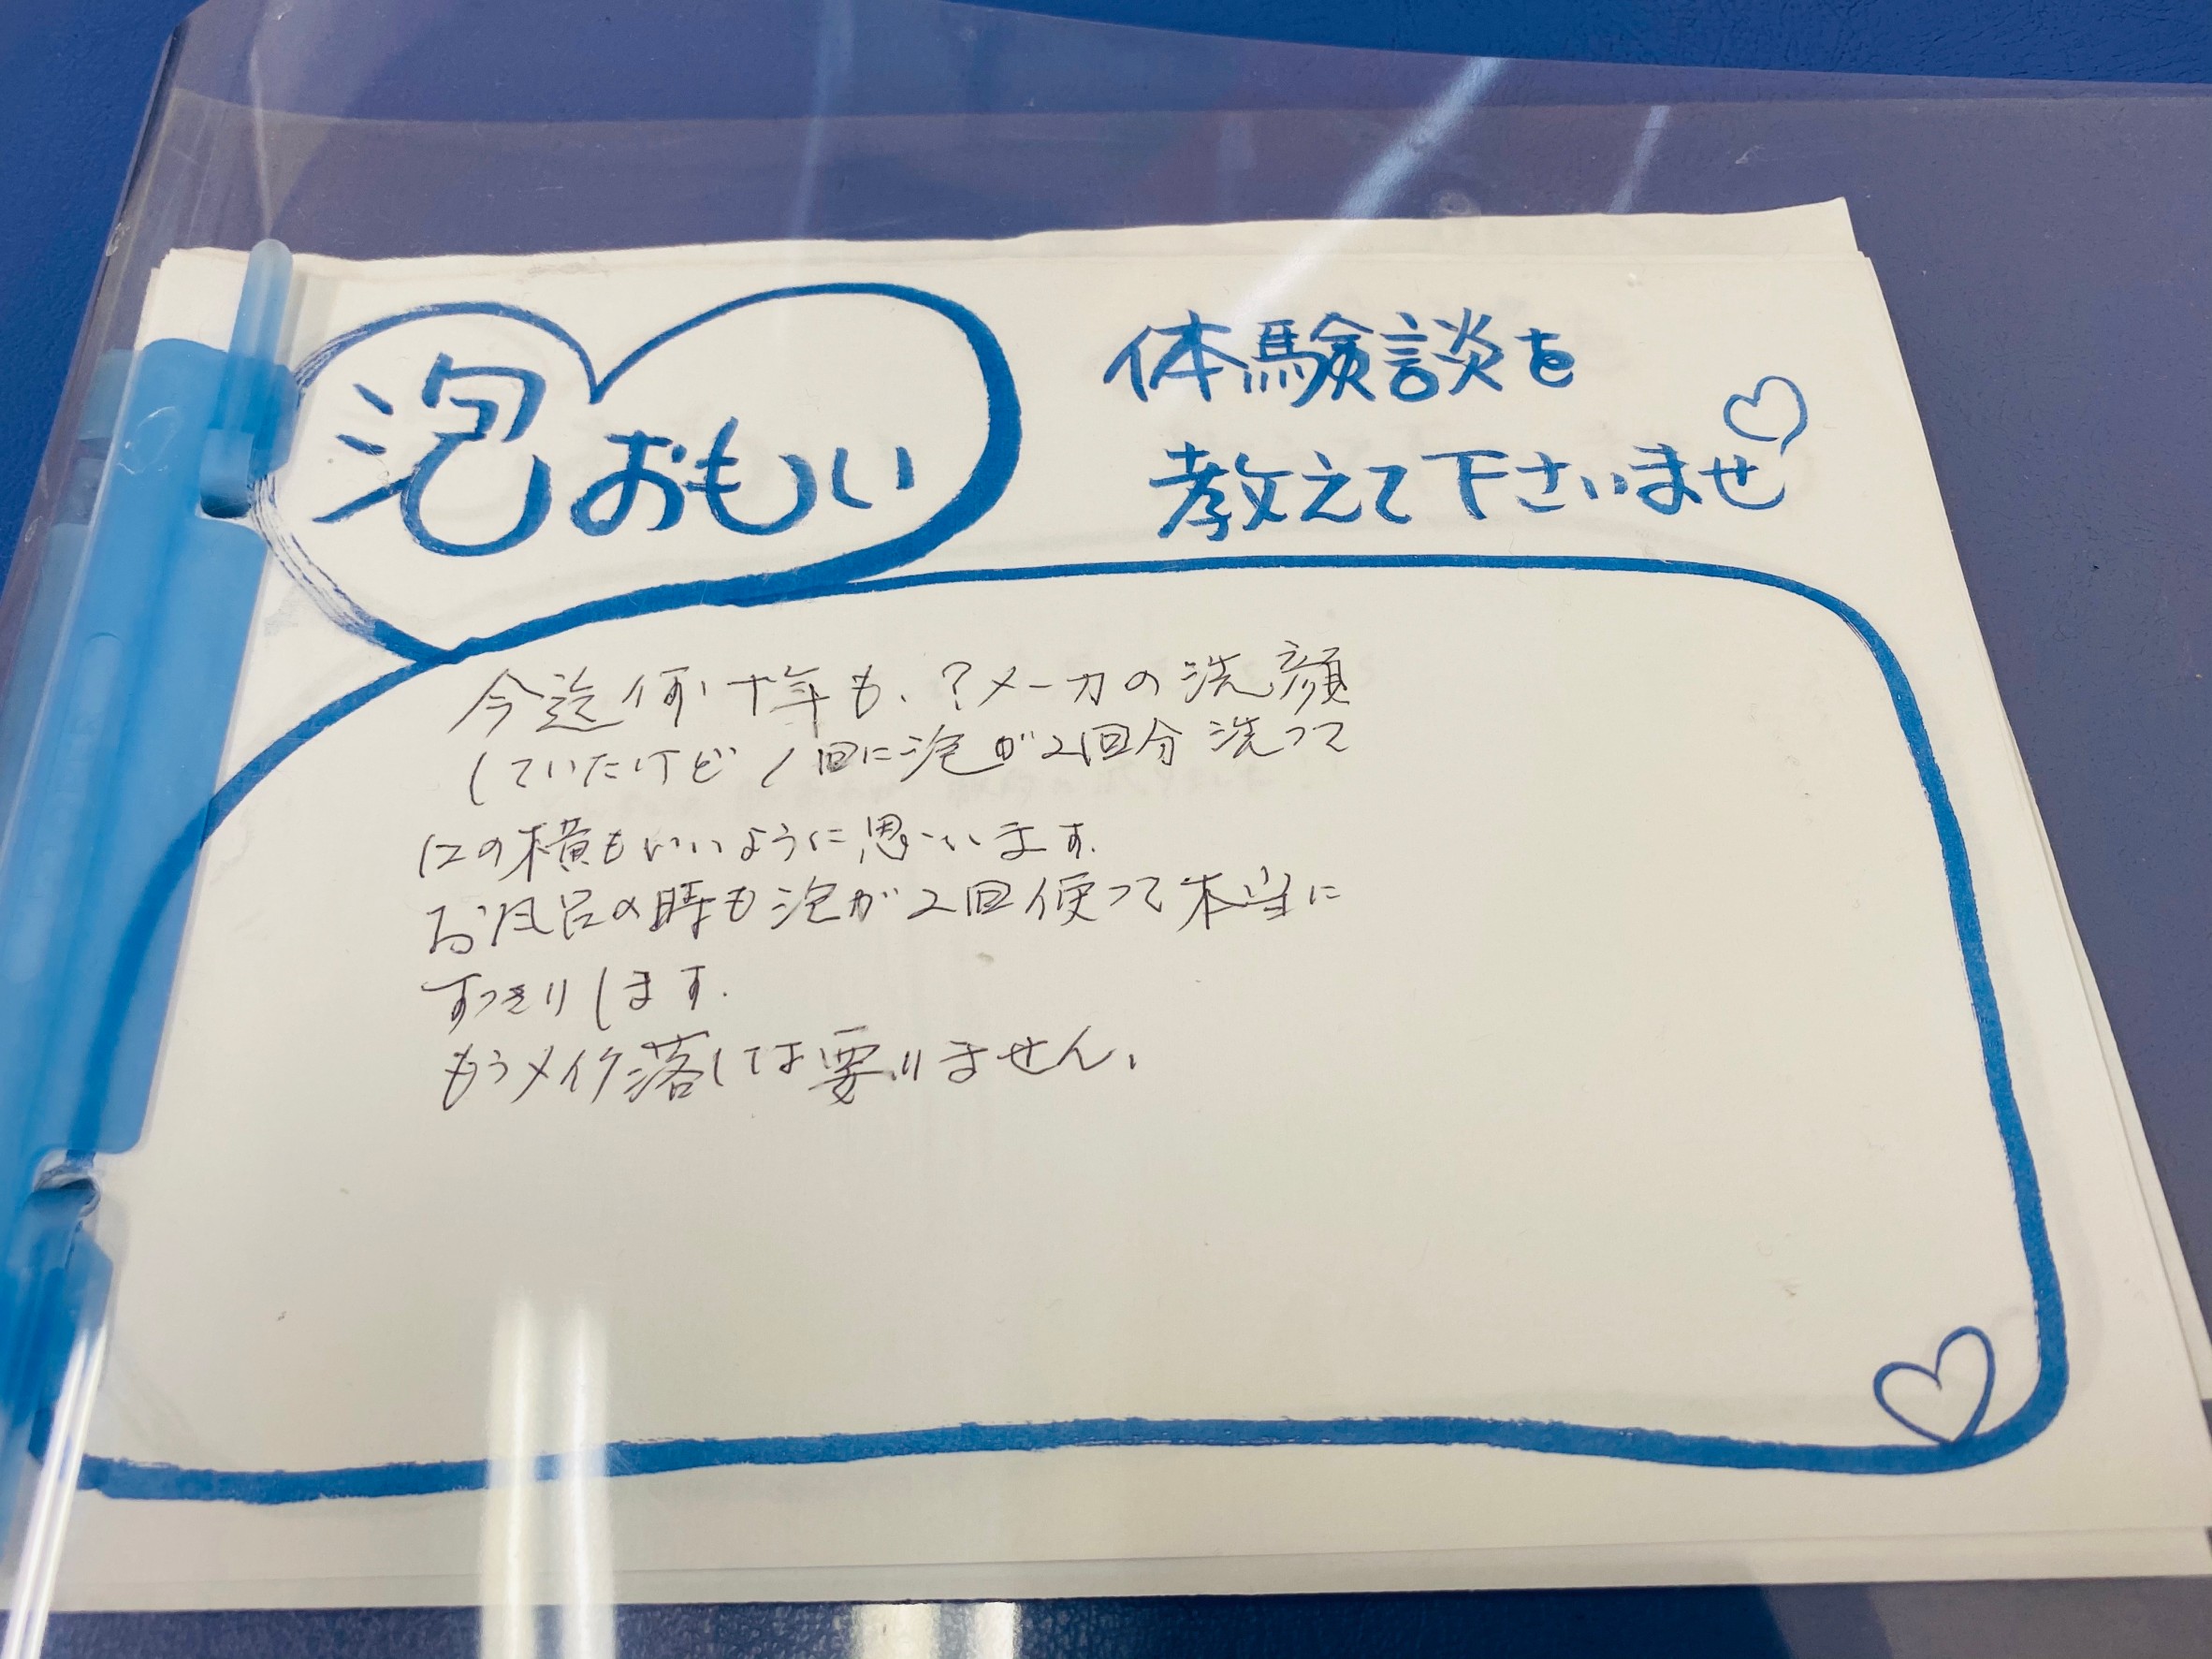 泡おもい
体験談を
教えて下さいませ
今迄何十年も、?メーカの洗顔
していたけど1回に泡が2回分洗って
口の横もいいように思います。
お風呂の時も泡が2回使って本当に
すっきりします。
もうメイク落しは要りません。